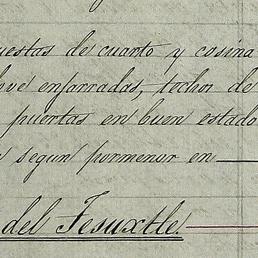 uestas de cuarto y cosina
enjarradas, techos de
puertas en buen estado
segun pormenor en
del Tesuxtle